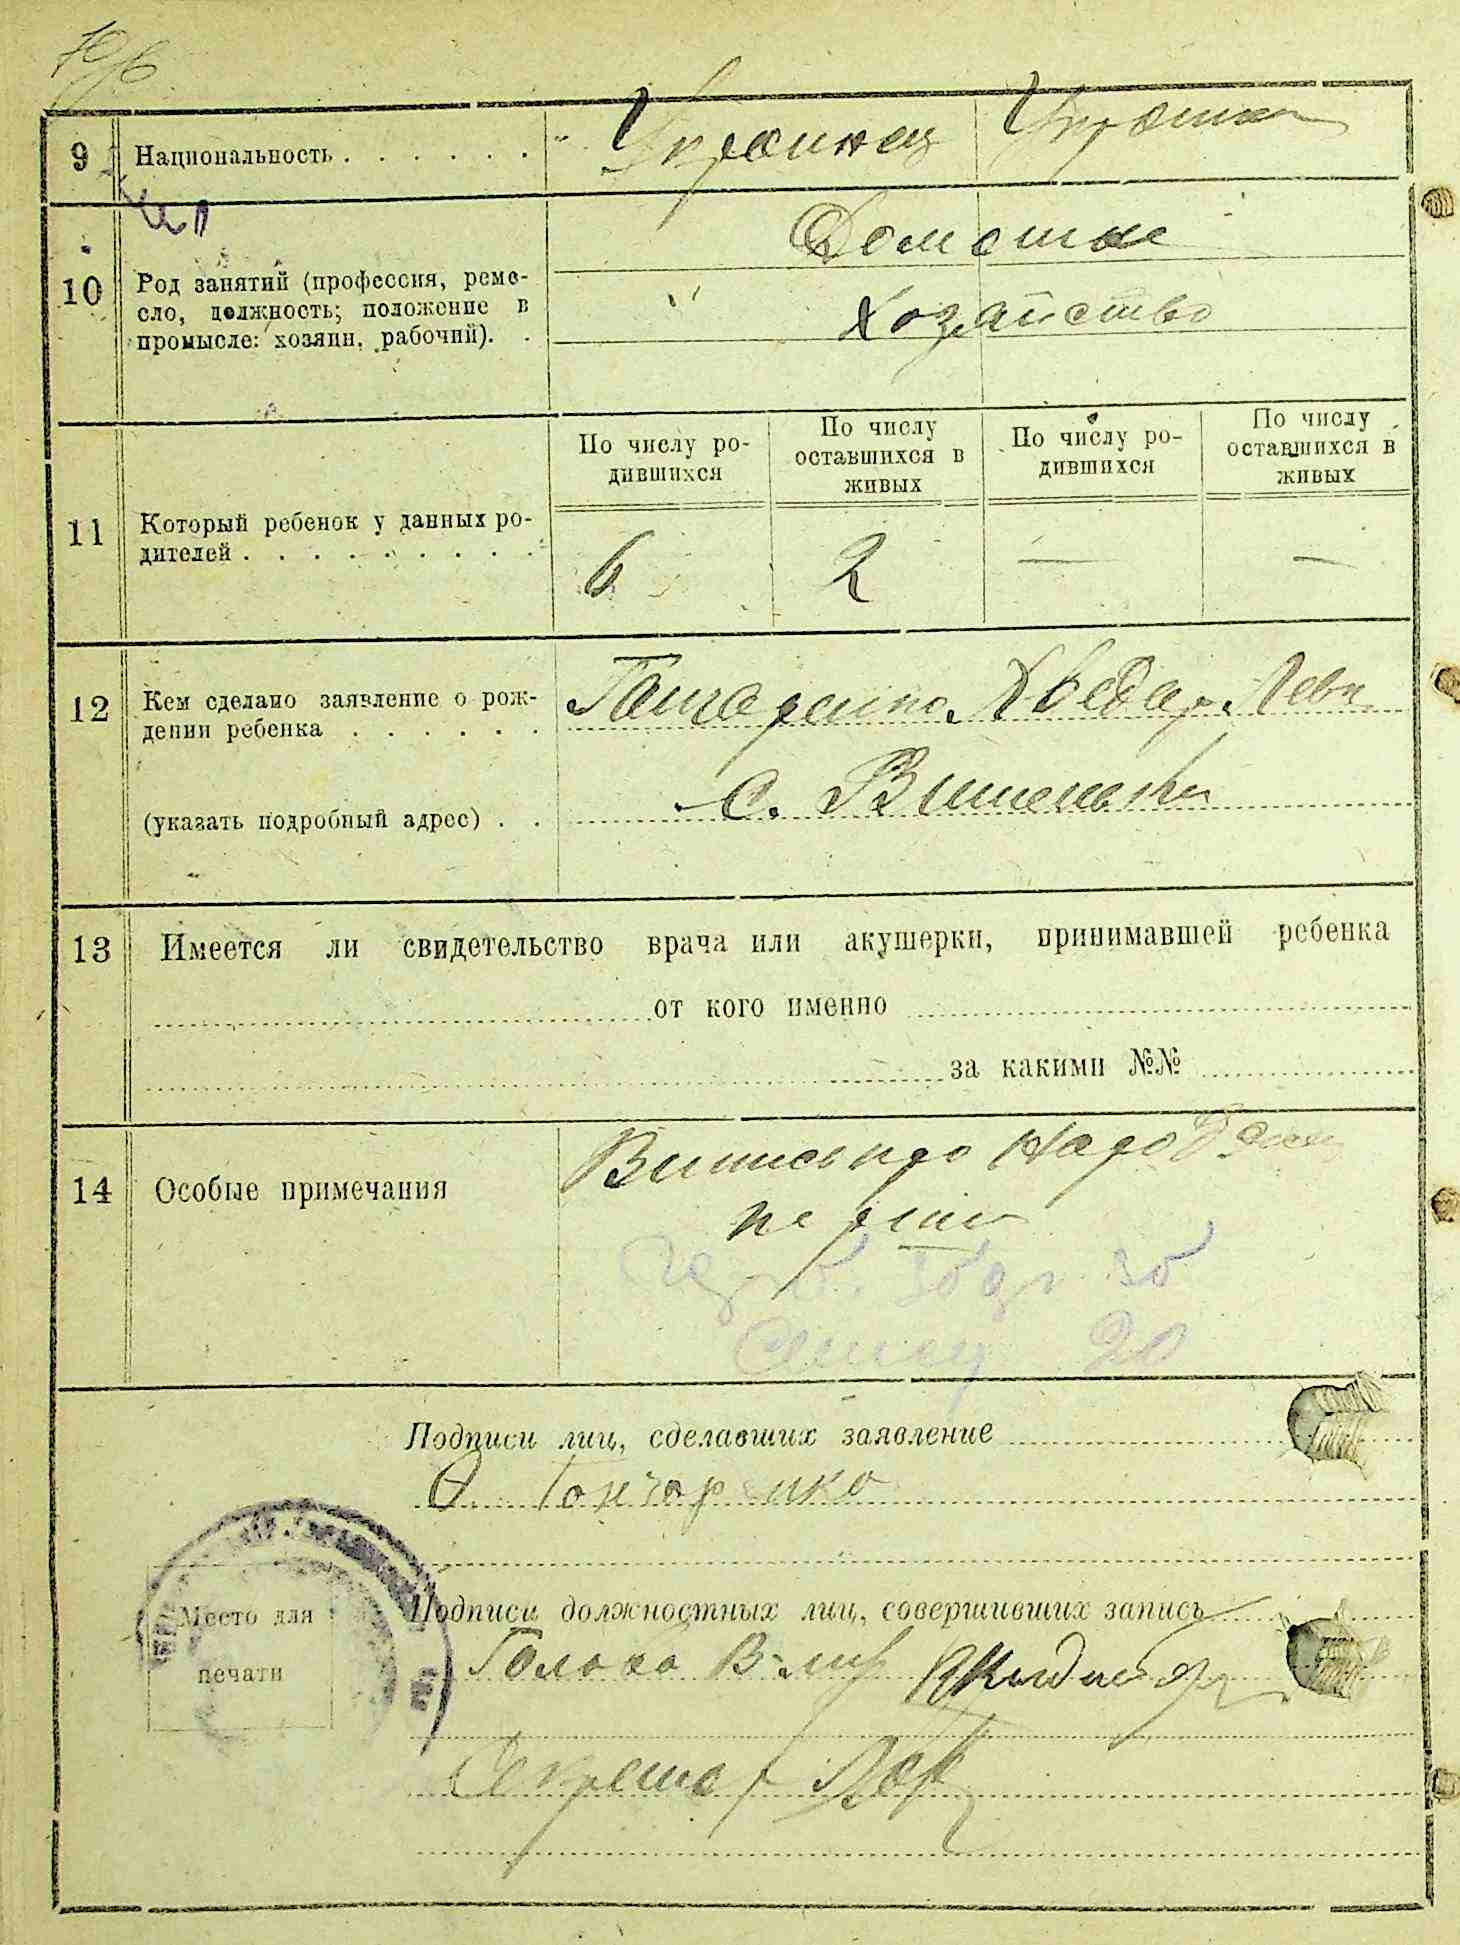 9 Национальность . . . . . . Украинец
10 Род занятий (профессия, реме-
сло, должность; положение в
промысле: хозяин, рабочий). .
Хозяйство
11 Который ребенок у данных ро-
дителей . . . . . . . . .
По числу ро-
дившихся
По числу
оставшихся в
живых
По числу ро-
дившихся
По числу
оставшихся в
живых
6 2 — —
12 Кем сделано заявление о рож-
дении ребенка . . . . . .
Хведар Левк.
(указать подробный адрес) . .
с. Вишеньки
13 Имеется ли свидетельство врача или акушерки, принимавшей ребенка
от кого именно
за какими №№
14 Особые примечания
Подписи лиц, сделавших заявление
Гончаренко
Место для
печати
Подписи должностных лиц, совершивших запись
Голова
Секретар